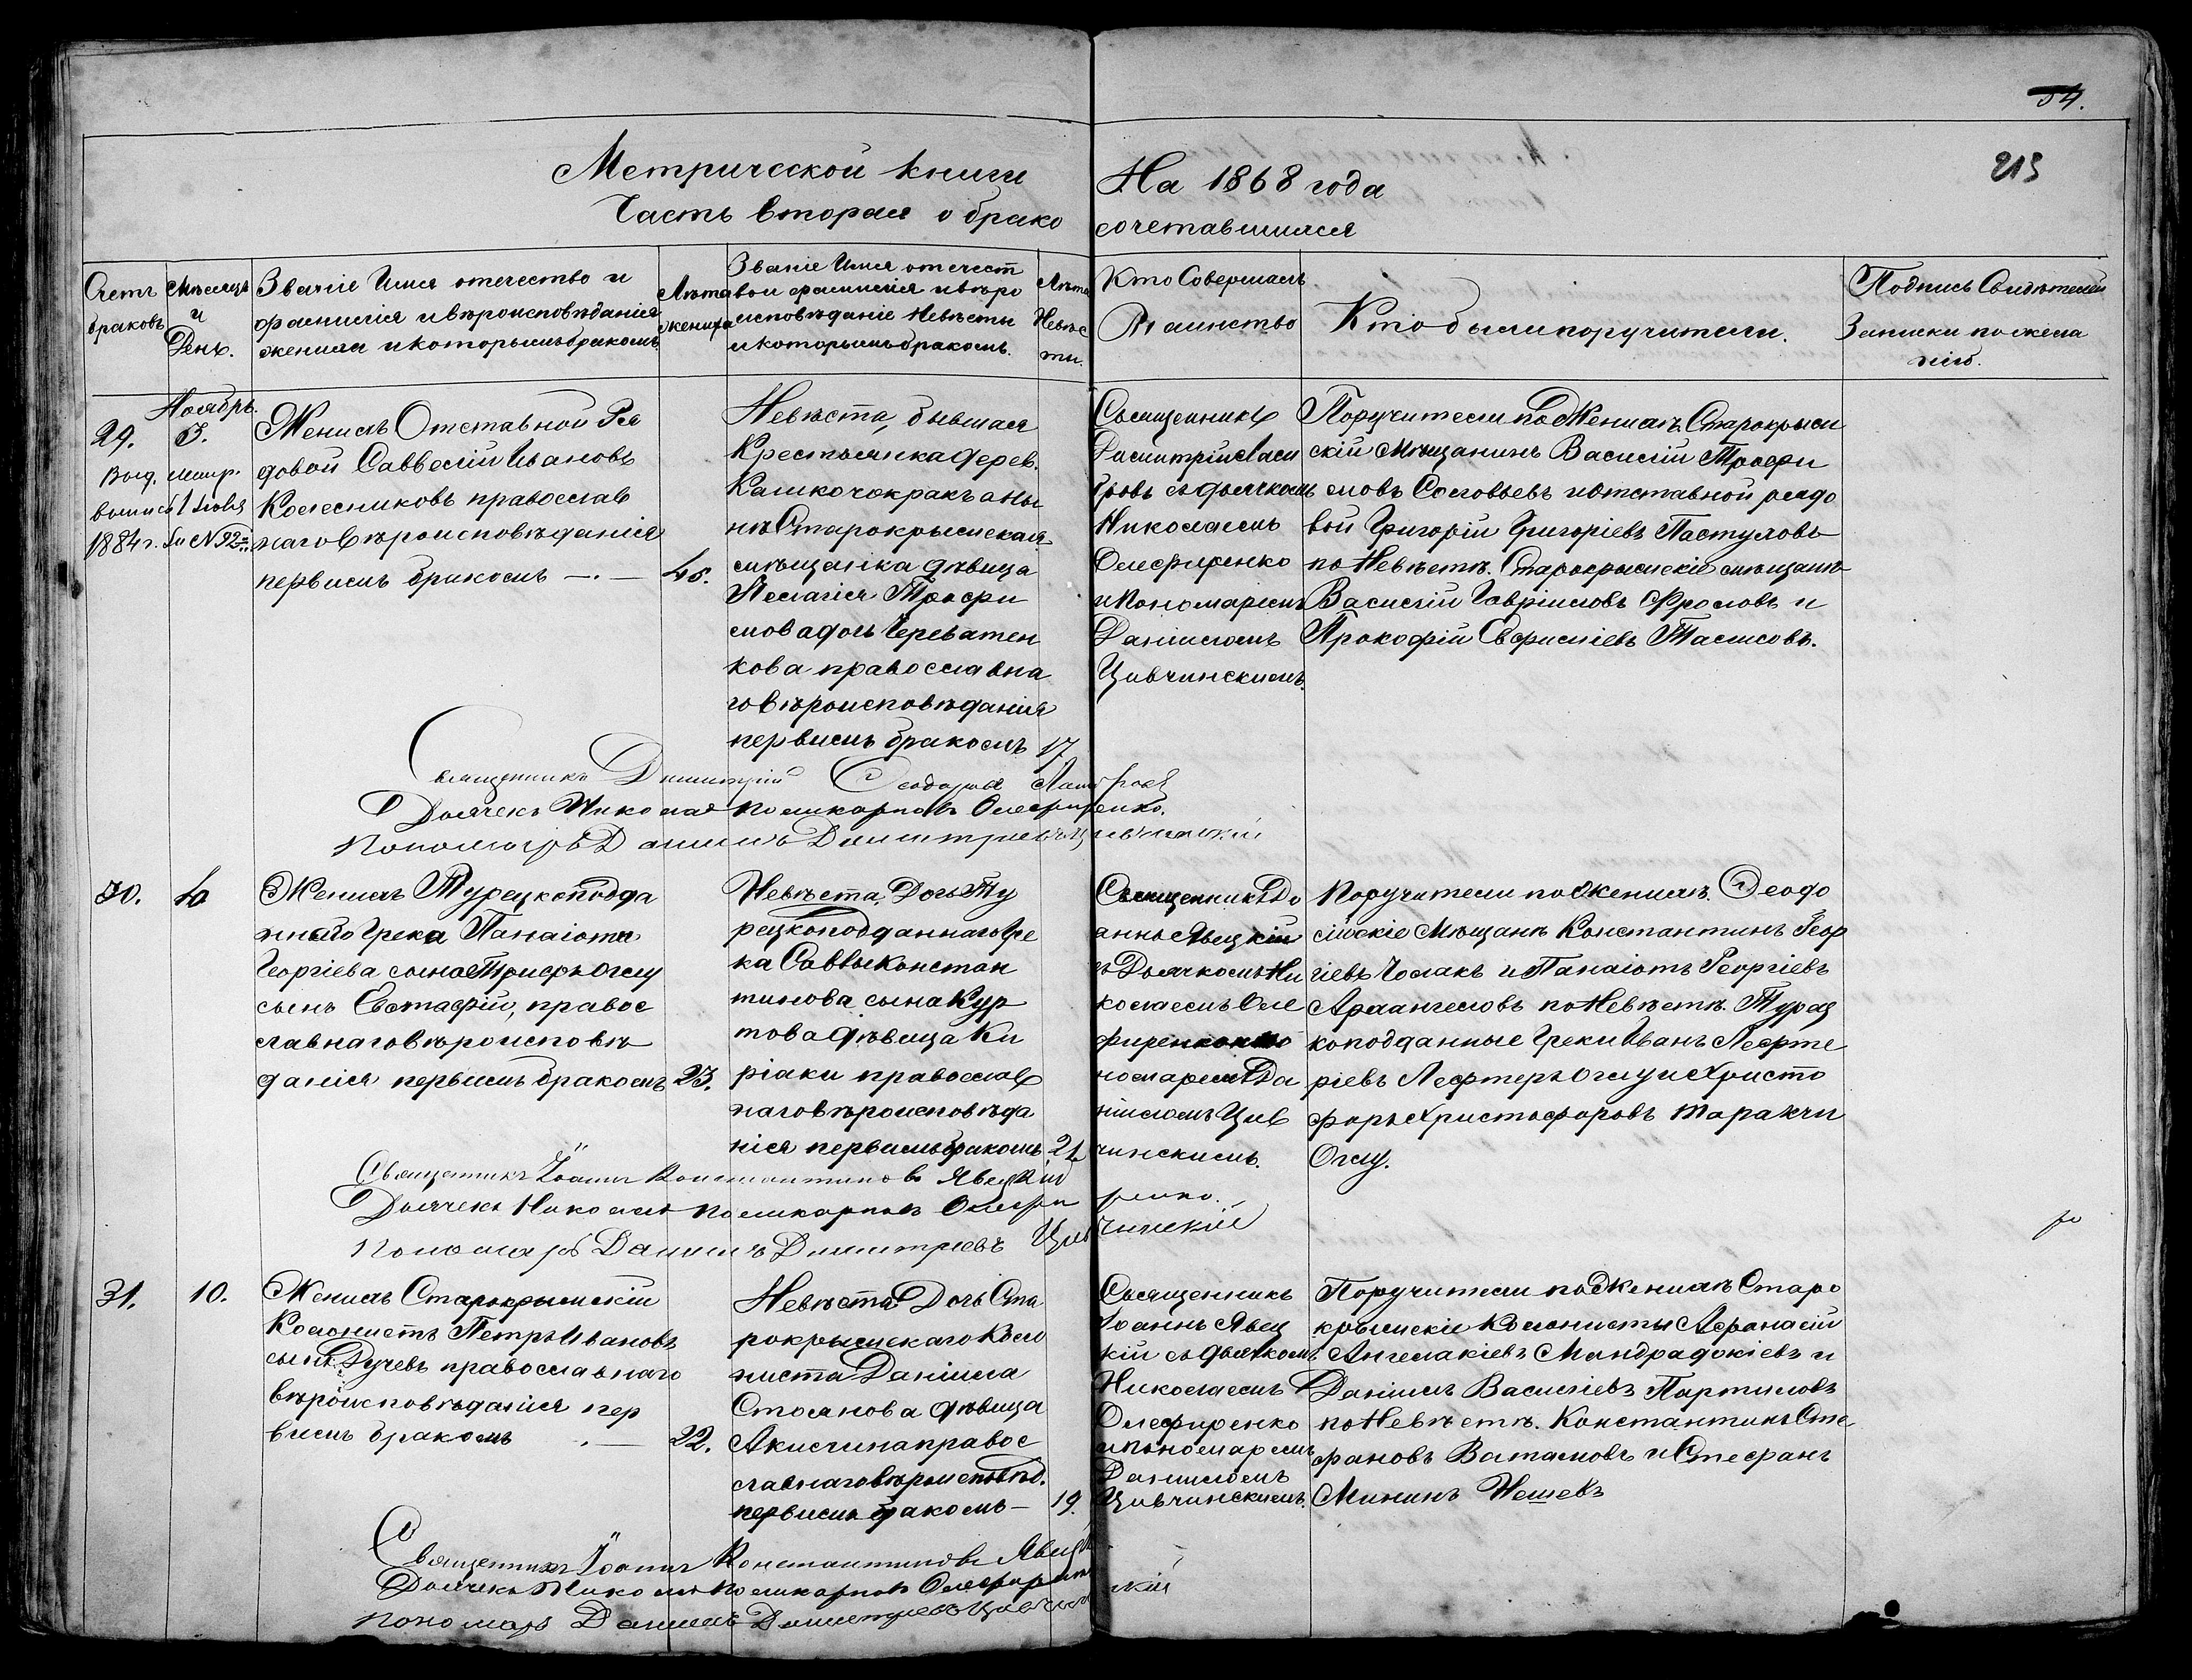 54.
213
Метрической книги
На 1868 года
Часть вторая о брако
сочетавшихся
Счетъ браковъ
Мѣсяцъ и День.
Званіе Имя отечество и
фамилія и вѣроисповѣданія
жениха и которымъ бракомъ.
Лѣта жениха
Званіе Имя отечест
вои фамилія и вѣро
исповѣданіе Невѣсты
и которымъ бракомъ.
Лѣта Невѣс ты.
Кто Совершалъ
Таинство
Кто были поручители.
Подпись Свидѣтелей
Записки по жела
нію.
29.
Ноябрь.
Выд. метр.
выпись 1 Іюля
1884 г. за № 92
Женихъ Отставной Ря
довой Савелій Ивановъ
Колесниковъ православ
наго вѣроисповѣданія
первымъ бракомъ —.—
45.
Невѣста, бывшая
Крестьянка дерев.
Камкочокракъ а ны
нѣ Старокрымская
мѣщанка дѣвица
Пелагія Трофи
мова дочь Череватен
кова православна
го вѣроисповѣданія
первымъ бракомъ
17
Священникъ
Димитрій
с дьячкомъ
Николаемъ
Олефиренко
и Пономаремъ
Даніиломъ
Цивчинскимъ.
Поручители по Женихѣ Старокрым
скій Мѣщанинъ Василій Трофи
мовъ Соловьевъ и отставной рядо
вой Григорій Григоріевъ Пастуховъ
по Невѣстѣ. Старокрымскіе мѣщанѣ
Василій Гавріиловъ Фроловъ и
Прокофій Евфиміевъ Тасисовъ.
Священникъ Димитрій Феодоровъ
Дьячекъ Николай Поликарповъ Олефиренко.
Пономарь Даніилъ Димитріевъ Цивчинскій
30.
10
Женихъ Турецкоподда
ннаго Грека Панаіота
Георгіева сына Трифъ Оглу
сынъ Евстафій, правос
лавнаго вѣроисповѣ
данія первымъ бракомъ
23.
Невѣста, Дочь Ту
рецкоподданнаго Гре
ка Саввы Констан
тинова сына Кур
това дѣвица Ки
ріаки православ
наго вѣроисповѣда
нія первымъ бракомъ
21
Священникъ Іо
аннъ Явецкій
съ Дьячкомъ Ни
колаемъ Оле
фиренко и по
номаремъ Да
ніиломъ Цив
чинскимъ.
Поручители по Женихѣ. Феодо
сійскіе Мѣщанѣ Константинъ Геор
гіевъ Чолакъ и Панаіотъ Георгіевъ
Архангеловъ по Невѣстѣ. Турец
коподданные Греки Иванъ Лефте
ріевъ Лефтеръ Оглу и Христо
форъ Христофоровъ Таракчи
Оглу.
Священникъ Іоаннъ Константиновъ Явецкій
Дьячекъ Николай Поликарповъ Олефиренко.
Пономарь Даніилъ Димитріевъ Цивчинскій
31.
10.
Женихъ Старокрымскій
Колонистъ Петръ Ивановъ
сынъ Дучевъ православнаго
вѣроисповѣданія пер
вымъ бракомъ .—
22.
Невѣста Дочь Ста
рокрымскаго Коло
ниста Даніила
Стоянова дѣвица
Акилина правос
лавнаго вѣроисповѣд.
первымъ бракомъ —
19.
Священникъ
Іоаннъ Явец
кій съ дьячкомъ
Николаемъ
Олефиренко
и пономаремъ
Даніиломъ
Цивчинскимъ.
Поручители по Женихѣ Старо
крымскіе Колонисты Афанасій
Ангелакіевъ Мандрадокіевъ и
Даніилъ Василіевъ Партиловъ
по Невѣстѣ. Константинъ Сте
фановъ Ватаковъ и Стефанъ
Мининъ Нешевъ
Священникъ Іоаннъ Константиновъ Явецкій
Дьячекъ Николай Поликарповъ Олефиренко
Пономарь Даніилъ Димитріевъ Цивчинскій